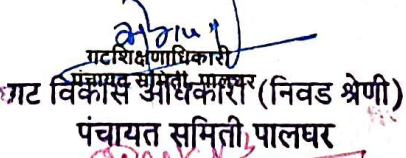 गटशिक्षणाधिकारी
पंचायत समिती, पालघर
गट विकास अधिकारी (निवड श्रेणी)
पंचायत समिती, पालघर